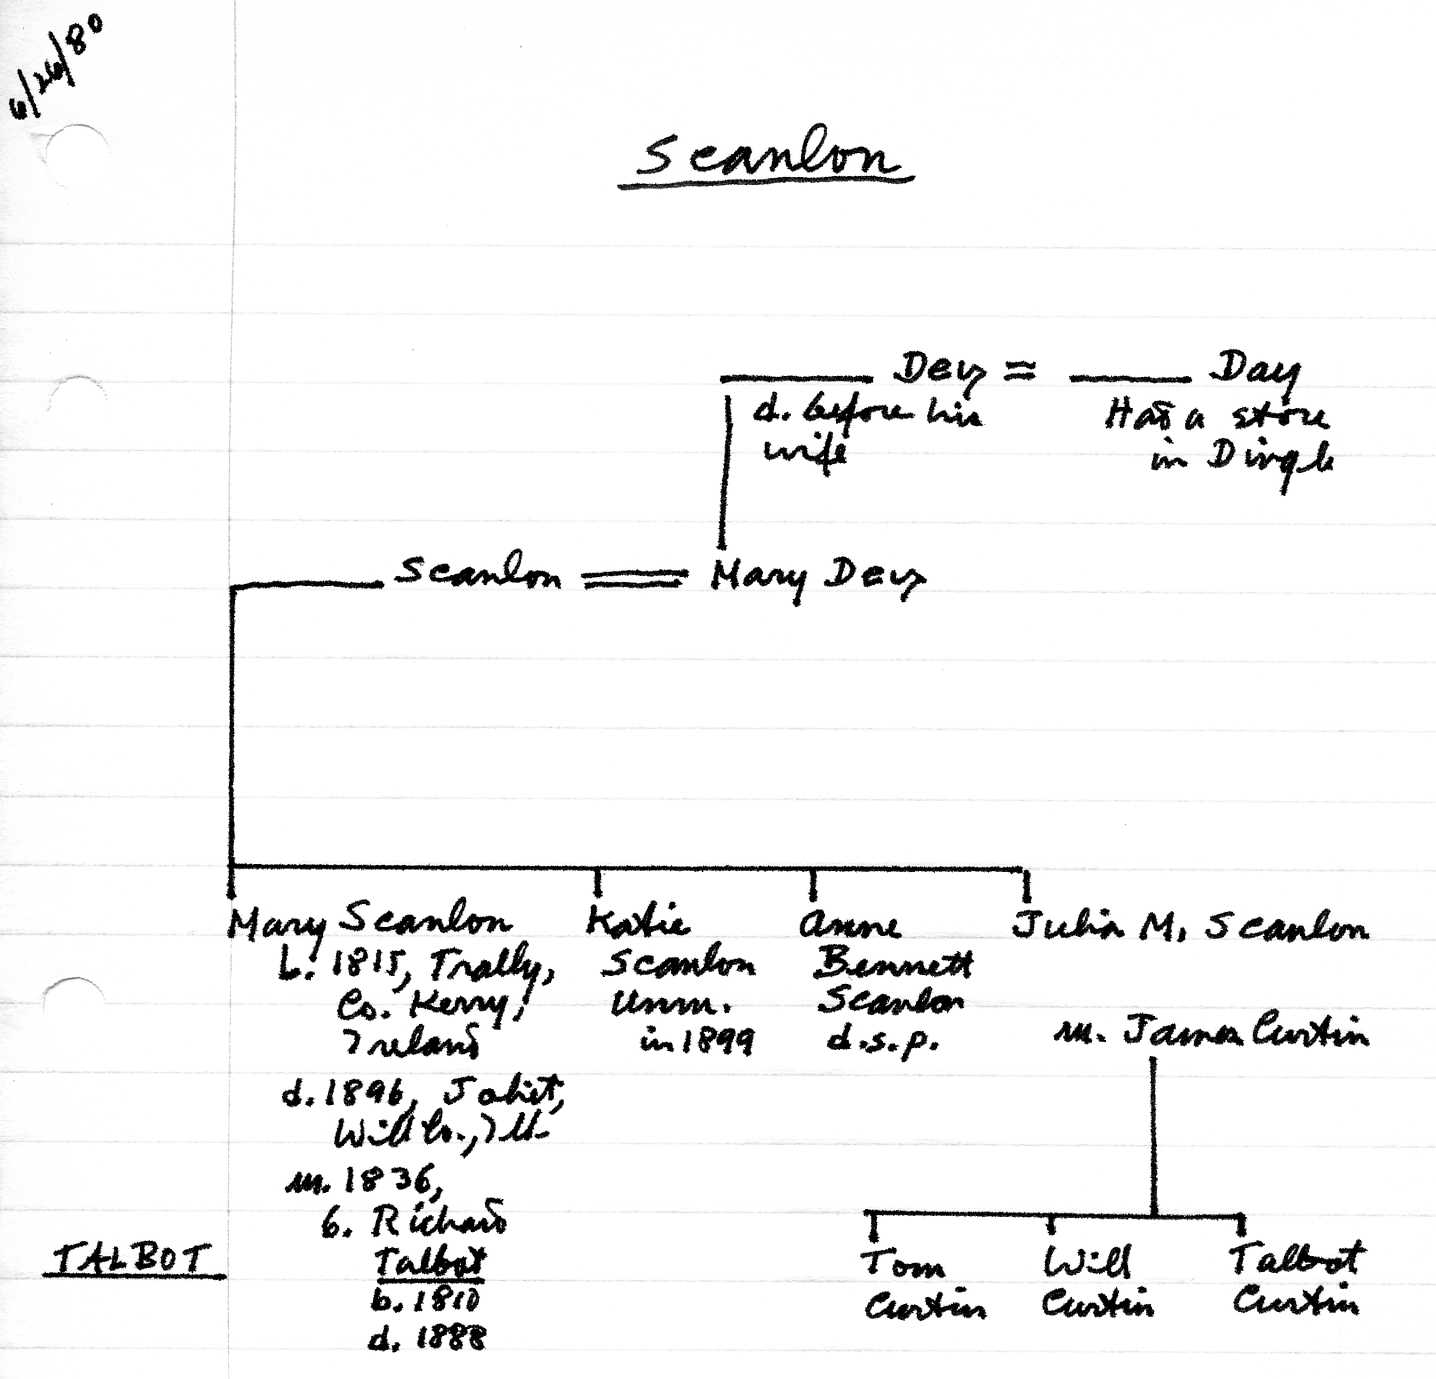 6/26/80
Scanlon
Devy = Day
d. before his
wife
Had a store
in Dingle
Scanlon = Mary Devy
Mary Scanlon
b. 1815, Trally,
Co. Kerry,
Ireland
d. 1896, Joliet,
Will Co., Ill.
m. 1836,
6. Richard
Talbot
b. 1810
d. 1888
TALBOT
Katie
Scanlon
Unm.
in 1899
Anne
Bennett
Scanlon
d.s.p.
Julia M. Scanlon
m. James Curtin
Tom
Curtin
Will
Curtin
Talbot
Curtin